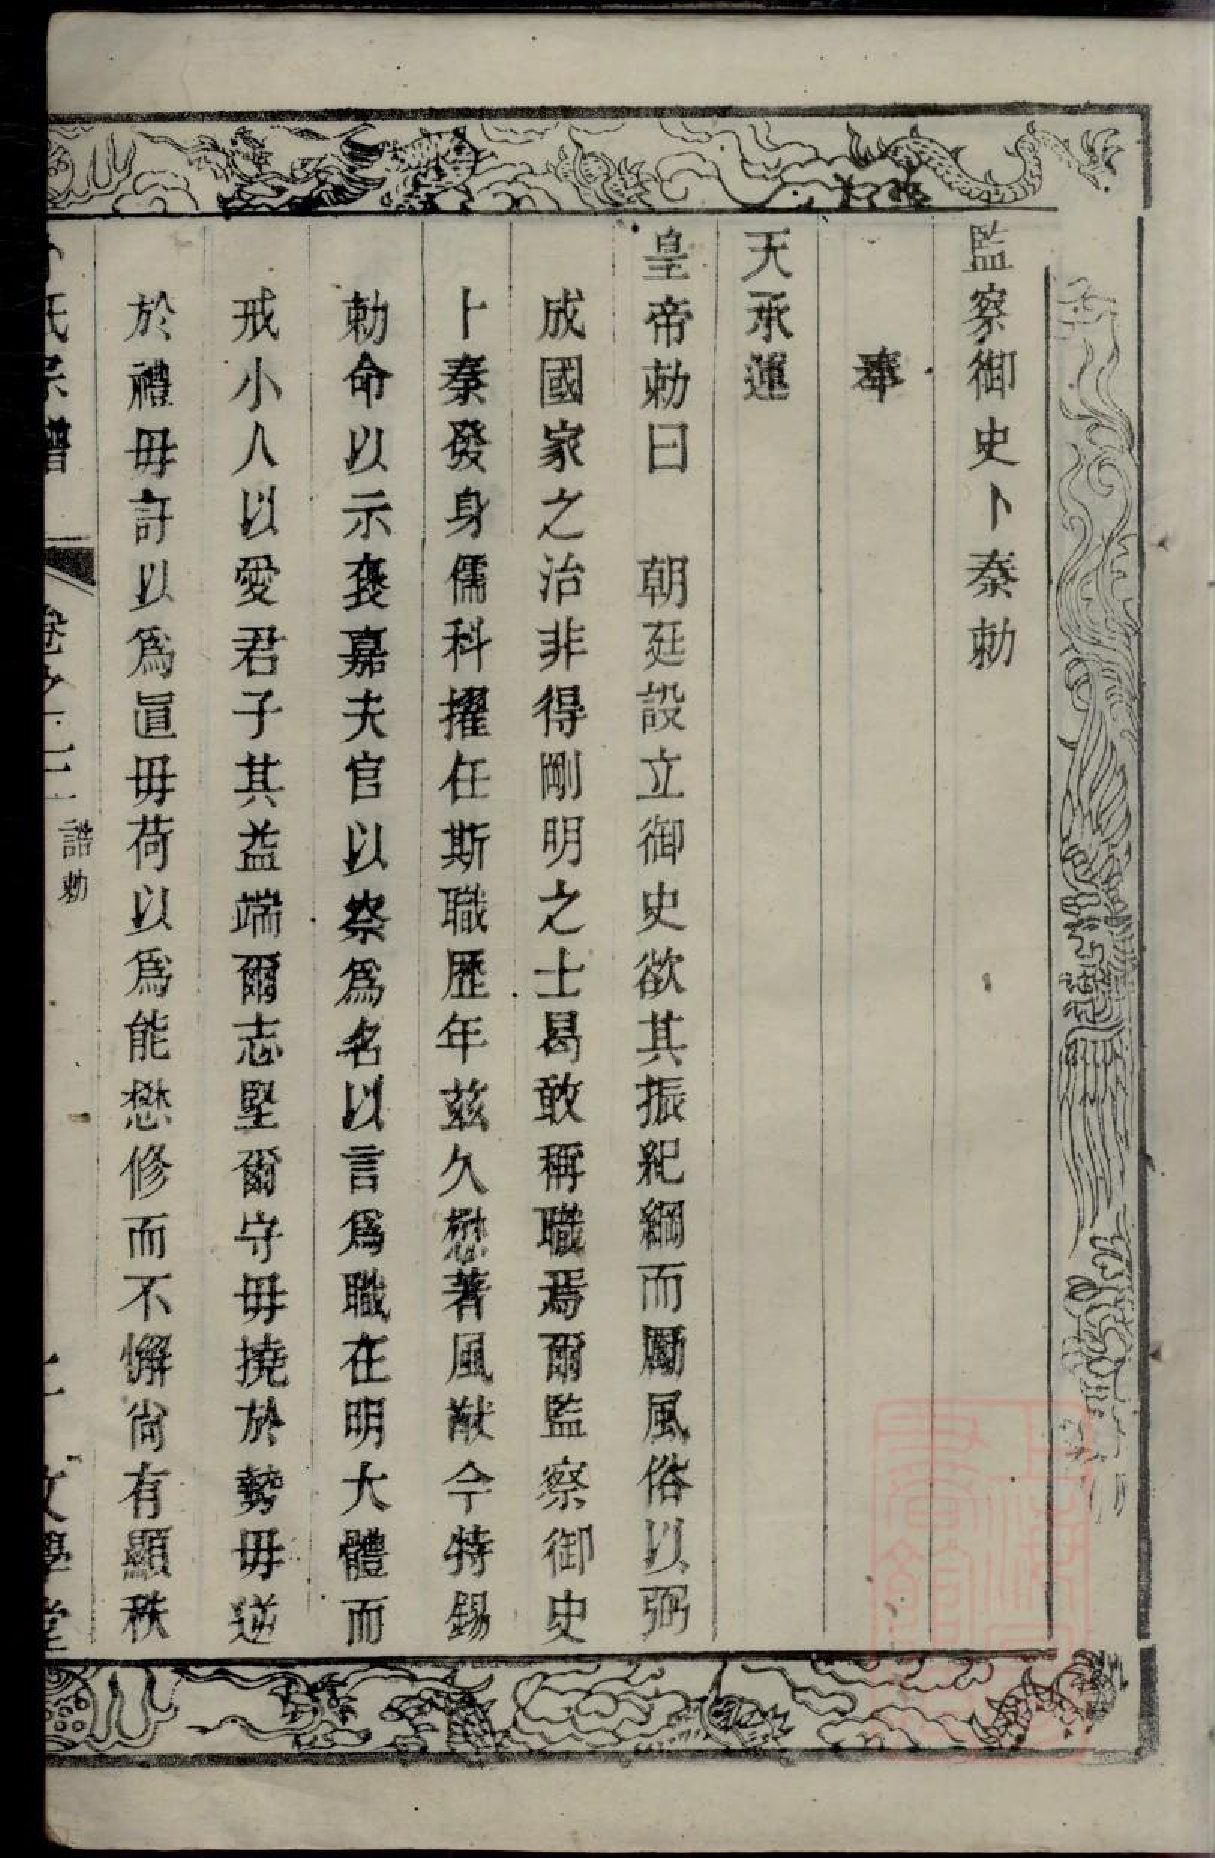 監察御史卜秦勅
奉
天承運
皇帝勅曰 朝廷設立御史欲其振紀綱而勵風俗以弼
成國家之治非得剛明之士曷敢稱職焉爾監察御史
卜秦發身儒科擢任斯職歷年茲久懋著風猷今特錫
勅命以示褒嘉夫官以察為名以言為職在明大體而
戒小人以愛君子其益端爾志堅爾守毋撓於勢毋逆
於禮毋訐以爲直毋苛以爲能懋修而不懈尚有顯秩
氏宗譜 卷之二 誥勅 文學堂